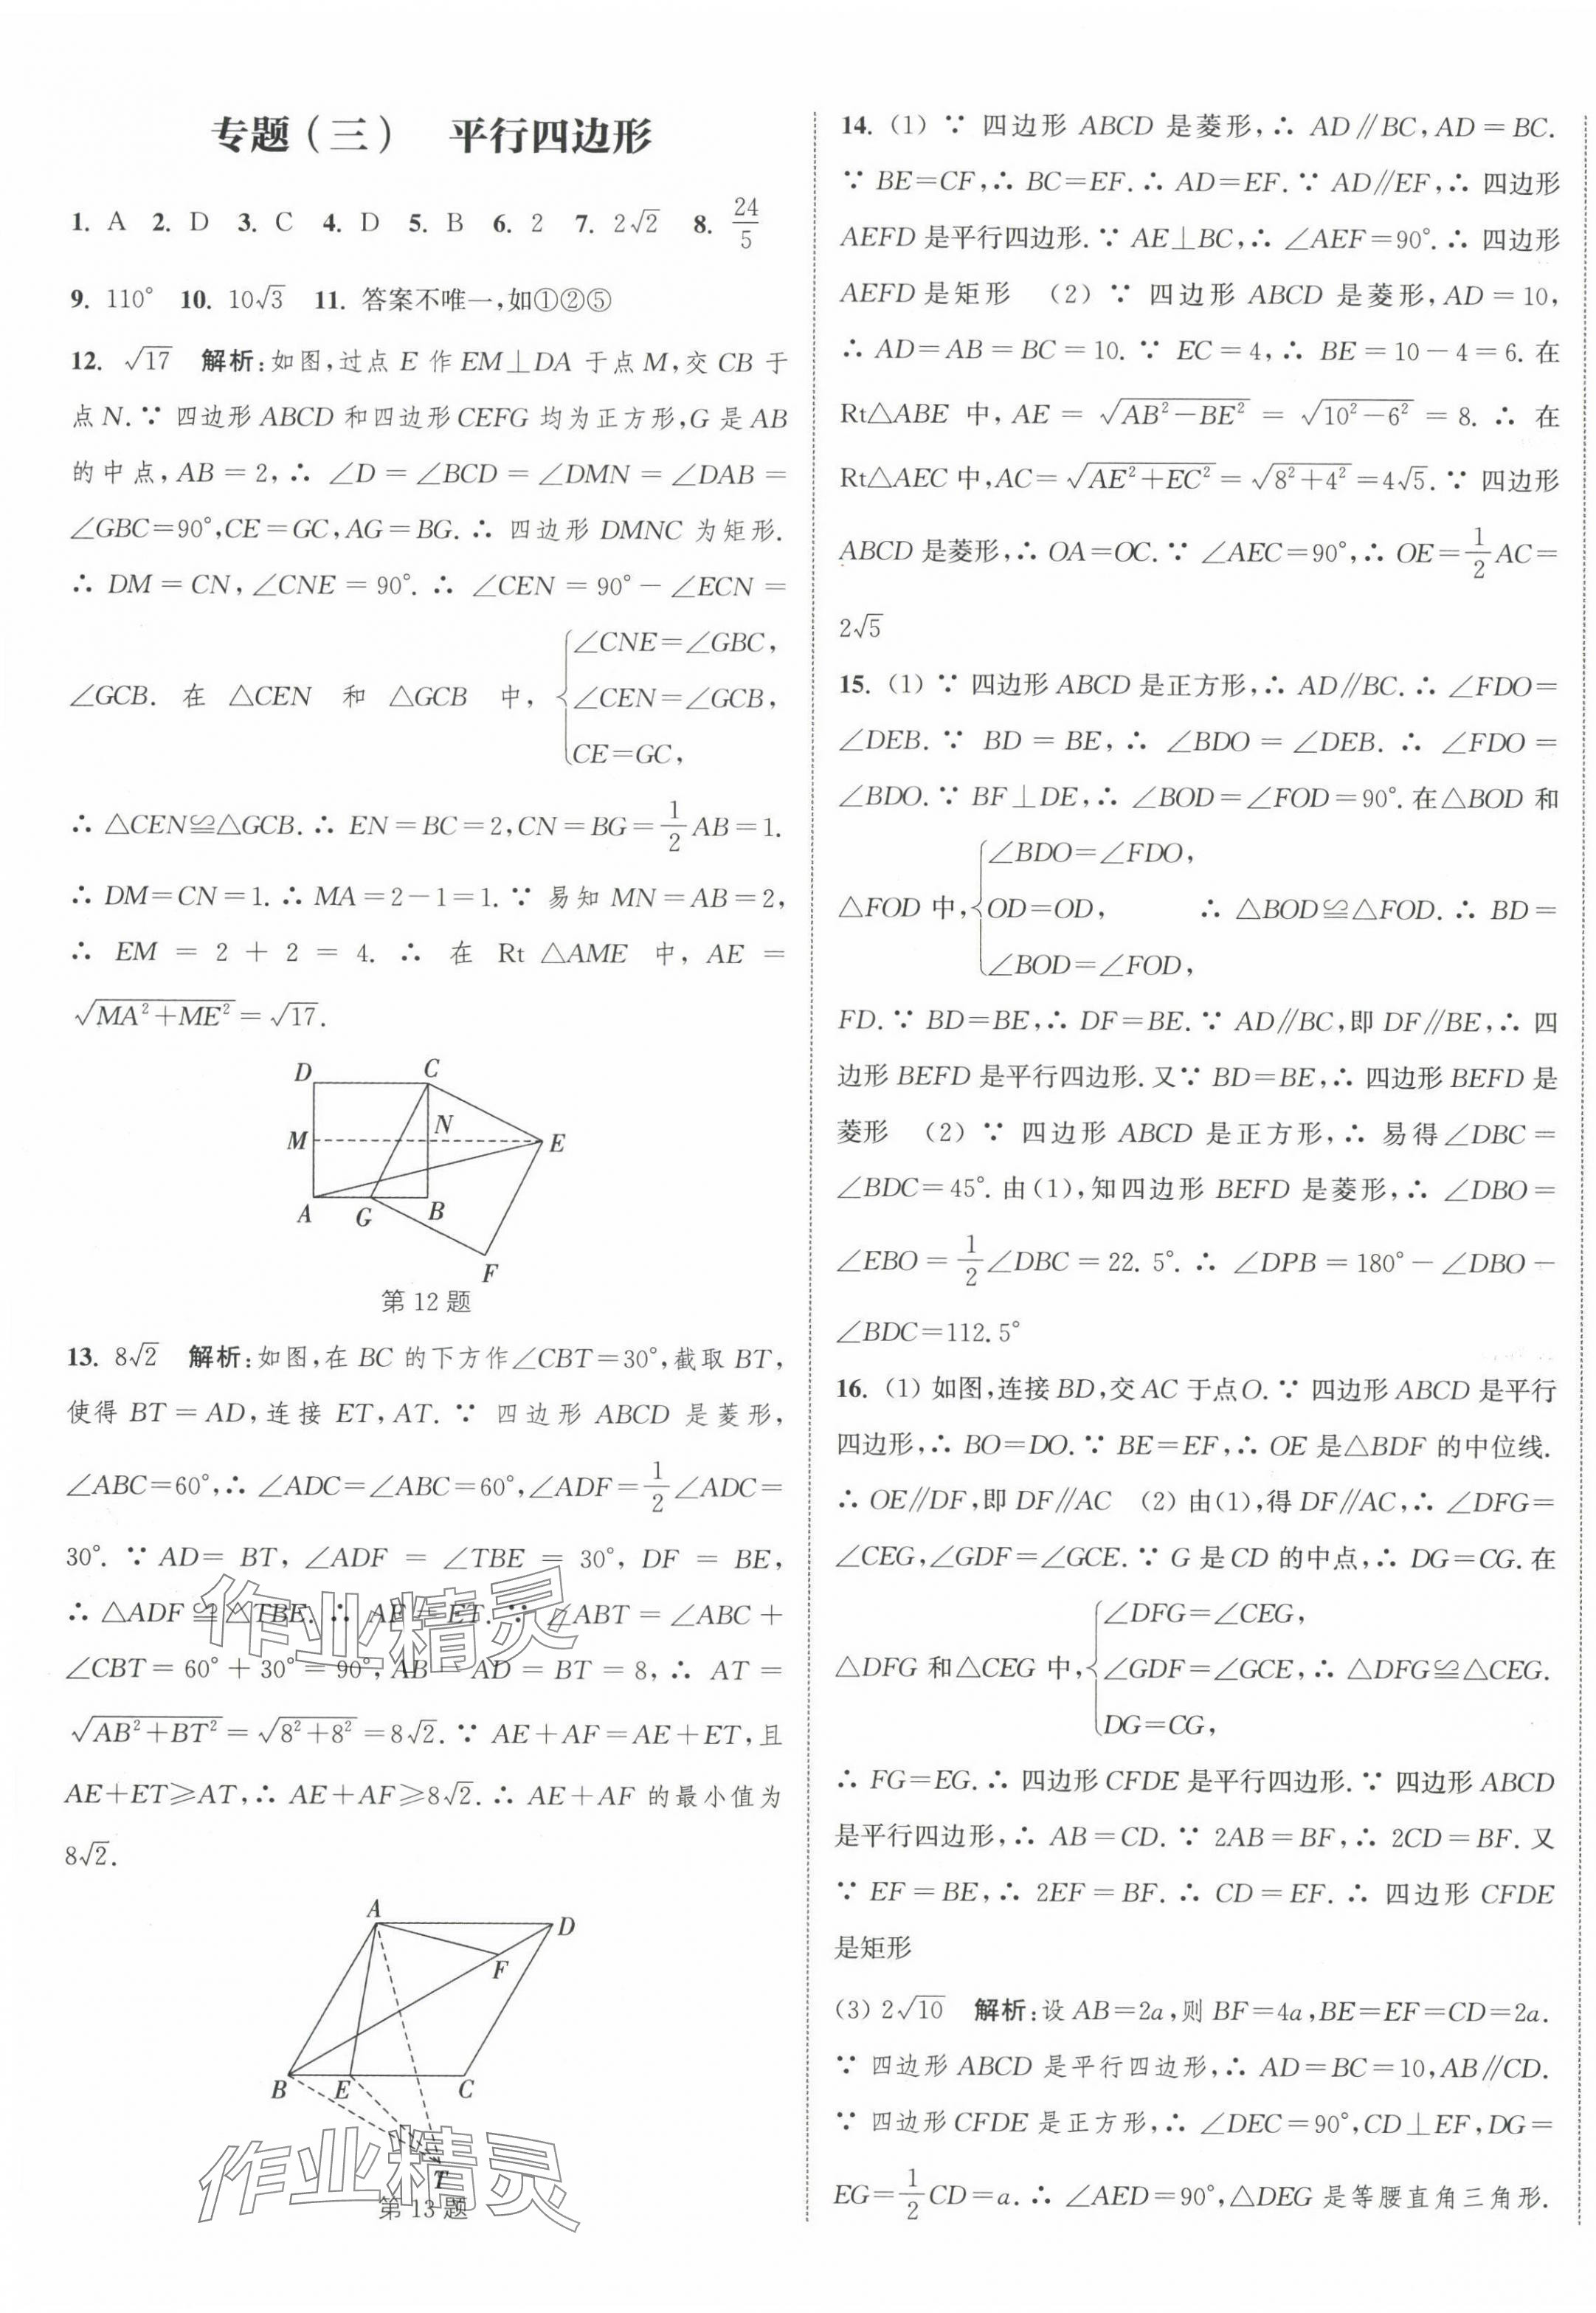 专题(三) 平行四边形
1. A 2. D 3. C 4. D 5. B 6. 2 7. 2√2 8. 24/5
9. 110° 10. 10√3 11. 答案不唯一,如①②⑤
12. √17 解析:如图,过点 E 作 EM⊥DA 于点 M,交 CB 于
点 N.∵ 四边形 ABCD 和四边形 CEFG 均为正方形,G 是 AB
的中点,AB=2,∴ ∠D=∠BCD=∠DMN=∠DAB=
∠GBC=90°,CE=GC,AG=BG.∴ 四边形 DMNC 为矩形.
∴ DM=CN,∠CNE=90°.∴ ∠CEN=90°-∠ECN=
∠GCB. 在 △CEN 和 △GCB 中,{∠CNE=∠GBC,
∠CEN=∠GCB,
CE=GC,
∴ △CEN≌△GCB.∴ EN=BC=2,CN=BG=1/2AB=1.
∴ DM=CN=1.∴ MA=2-1=1.∵ 易知 MN=AB=2,
∴ EM=2+2=4.∴ 在 Rt△AME 中,AE=
√(MA²+ME²)=√17.
D C
N
M E
A G B
F
第 12 题
13. 8√2 解析:如图,在 BC 的下方作∠CBT=30°,截取 BT,
使得 BT=AD,连接 ET,AT.∵ 四边形 ABCD 是菱形,
∠ABC=60°,∴ ∠ADC=∠ABC=60°,∠ADF=1/2∠ADC=
30°.∵ AD=BT,∠ADF=∠TBE=30°,DF=BE,
∴ △ADF≌△TBE.∴ AF=ET.∵ ∠ABT=∠ABC+
∠CBT=60°+30°=90°,AB=AD=BT=8,∴ AT=
√(AB²+BT²)=√(8²+8²)=8√2.∵ AE+AF=AE+ET,且
AE+ET≥AT,∴ AE+AF≥8√2.∴ AE+AF 的最小值为
8√2.
A D
F
B E C
T
第 13 题
14. (1) ∵ 四边形 ABCD 是菱形,∴ AD∥BC,AD=BC.
∵ BE=CF,∴ BC=EF.∴ AD=EF.∵ AD∥EF,∴ 四边形
AEFD 是平行四边形.∵ AE⊥BC,∴ ∠AEF=90°.∴ 四边形
AEFD 是矩形 (2) ∵ 四边形 ABCD 是菱形,AD=10,
∴ AD=AB=BC=10.∵ EC=4,∴ BE=10-4=6.在
Rt△ABE 中,AE=√(AB²-BE²)=√(10²-6²)=8.∴ 在
Rt△AEC 中,AC=√(AE²+EC²)=√(8²+4²)=4√5.∵ 四边形
ABCD 是菱形,∴ OA=OC.∵ ∠AEC=90°,∴ OE=1/2AC=
2√5
15. (1) ∵ 四边形 ABCD 是正方形,∴ AD∥BC.∴ ∠FDO=
∠DEB.∵ BD=BE,∴ ∠BDO=∠DEB.∴ ∠FDO=
∠BDO.∵ BF⊥DE,∴ ∠BOD=∠FOD=90°.在△BOD 和
△FOD 中,{∠BDO=∠FDO,
OD=OD, ∴ △BOD≌△FOD.∴ BD=
∠BOD=∠FOD,
FD.∵ BD=BE,∴ DF=BE.∵ AD∥BC,即 DF∥BE,∴ 四
边形 BEFD 是平行四边形.又∵ BD=BE,∴ 四边形 BEFD 是
菱形 (2) ∵ 四边形 ABCD 是正方形,∴ 易得∠DBC=
∠BDC=45°.由(1),知四边形 BEFD 是菱形,∴ ∠DBO=
∠EBO=1/2∠DBC=22.5°.∴ ∠DPB=180°-∠DBO-
∠BDC=112.5°
16. (1) 如图,连接 BD,交 AC 于点 O.∵ 四边形 ABCD 是平行
四边形,∴ BO=DO.∵ BE=EF,∴ OE 是△BDF 的中位线.
∴ OE∥DF,即 DF∥AC (2) 由(1),得 DF∥AC,∴ ∠DFG=
∠CEG,∠GDF=∠GCE.∵ G 是 CD 的中点,∴ DG=CG.在
△DFG 和△CEG 中,{∠DFG=∠CEG,
∠GDF=∠GCE,∴ △DFG≌△CEG.
DG=CG,
∴ FG=EG.∴ 四边形 CFDE 是平行四边形.∵ 四边形 ABCD
是平行四边形,∴ AB=CD.∵ 2AB=BF,∴ 2CD=BF.又
∵ EF=BE,∴ 2EF=BF.∴ CD=EF.∴ 四边形 CFDE
是矩形
(3) 2√10 解析:设 AB=2a,则 BF=4a,BE=EF=CD=2a.
∵ 四边形 ABCD 是平行四边形,∴ AD=BC=10,AB∥CD.
∵ 四边形 CFDE 是正方形,∴ ∠DEC=90°,CD⊥EF,DG=
EG=1/2CD=a.∴ ∠AED=90°,△DEG 是等腰直角三角形.
作业精灵
作业精灵